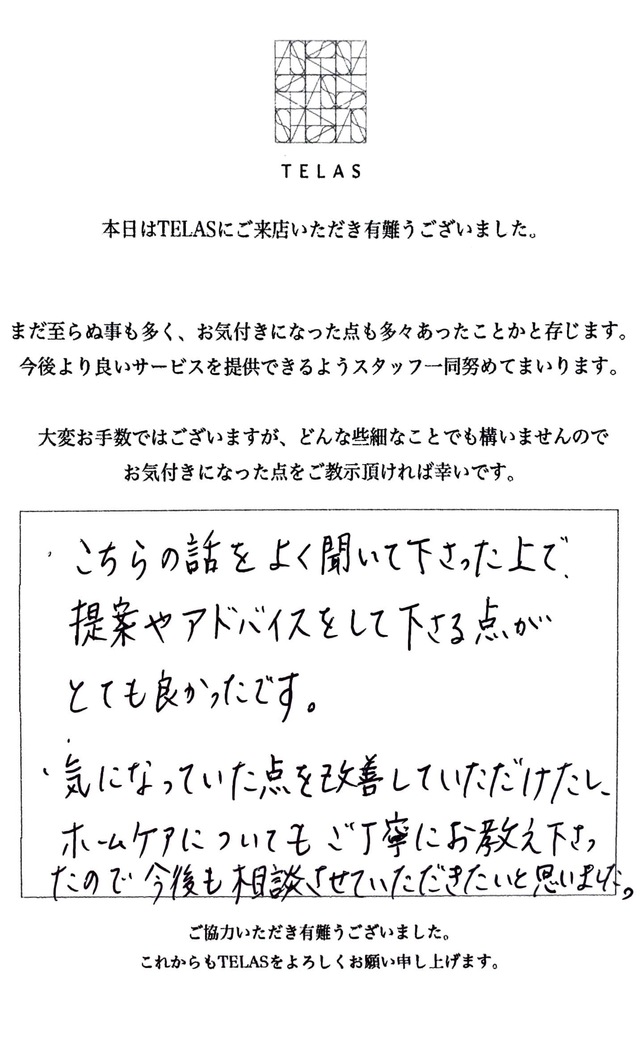 TELAS
本日はTELASにご来店いただき有難うございました。
まだ至らぬ事も多く、お気付きになった点も多々あったことかと存じます。
今後より良いサービスを提供できるようスタッフ一同努めてまいります。
大変お手数ではございますが、どんな些細なことでも構いませんので
お気付きになった点をご教示頂ければ幸いです。
・こちらの話をよく聞いて下さった上で、
提案やアドバイスをして下さる点が
とても良かったです。
・気になっていた点を改善していただけたし、
ホームケアについてもご丁寧にお教え下さっ
たので今後も相談させていただきたいと思いました。
ご協力いただき有難うございました。
これからもTELASをよろしくお願い申し上げます。